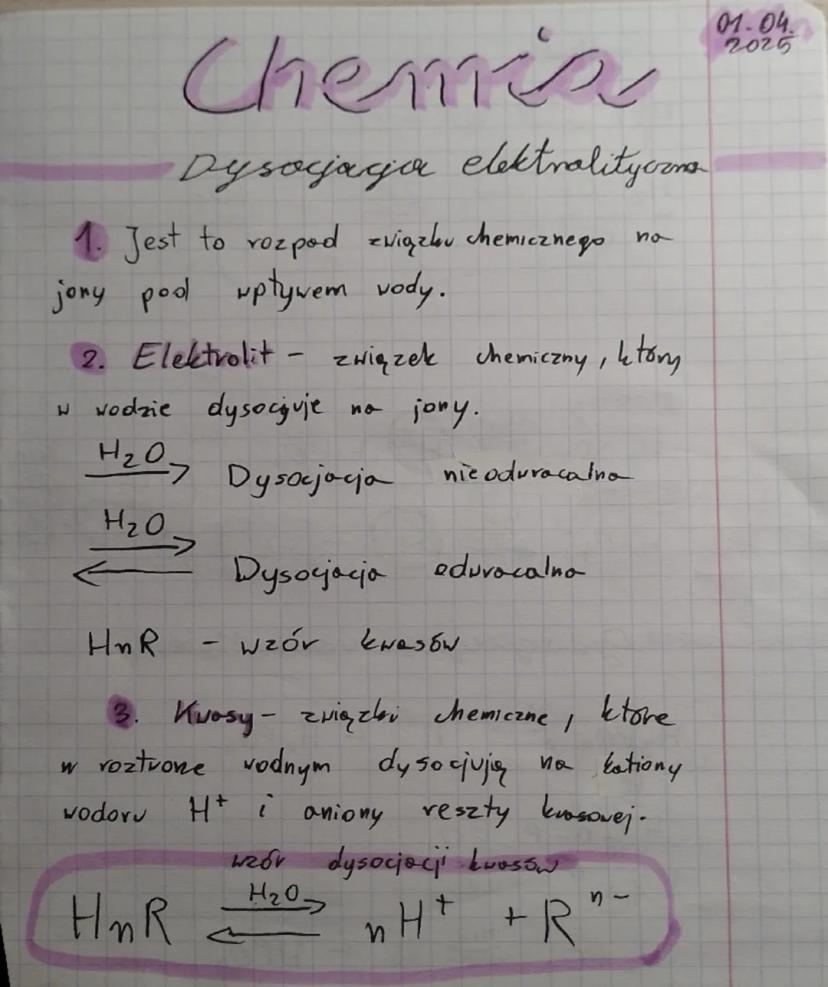 01.04.
2025
Chemia
Dysocjacja elektrolityczna
1. Jest to rozpad związku chemicznego na
jony pod wpływem wody.
2. Elektrolit - związek chemiczny, który
w wodzie dysocjuje na jony.
H₂O → Dysocjacja nieodwracalna
H₂O ⇄ Dysocjacja odwracalna
HnR - wzór kwasów
3. Kwasy - związki chemiczne, które
w roztworze wodnym dysocjują na kationy
wodoru H⁺ i aniony reszty kwasowej.
wzór dysocjacji kwasów
HnR ⇄ H₂O nH⁺ + Rⁿ⁻